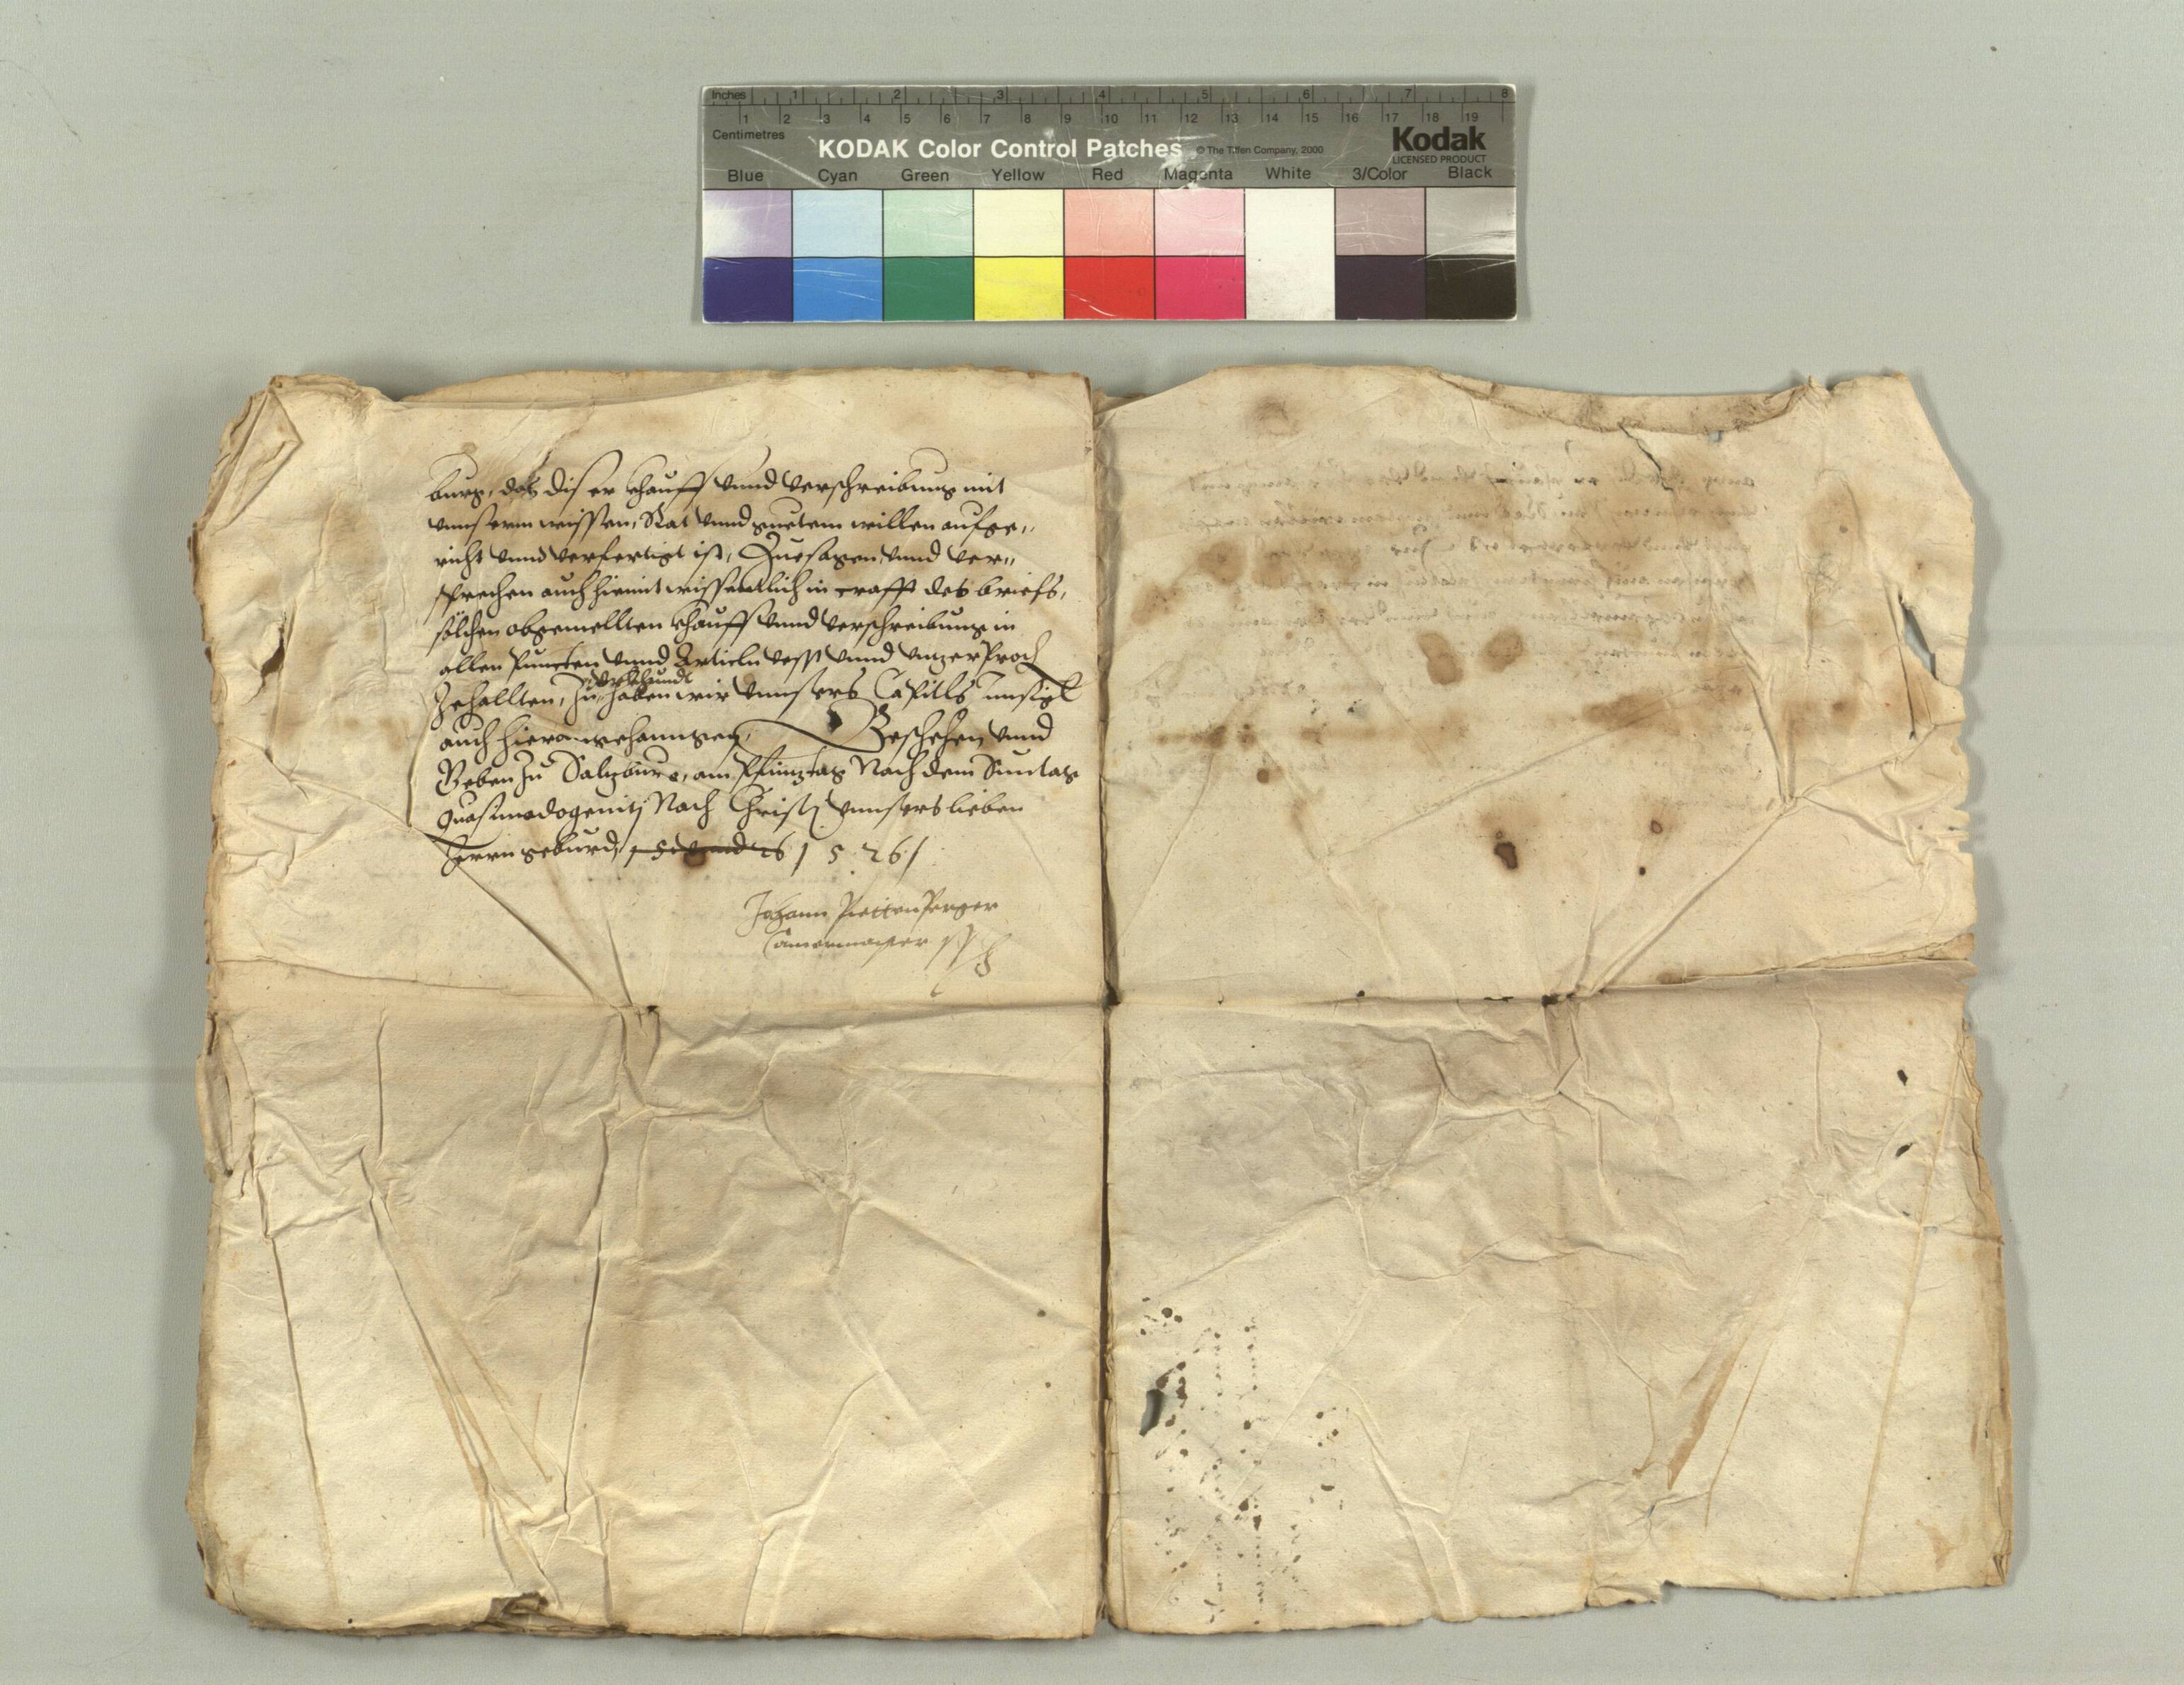 Inches 1 2 3 4 5 6 7 8
1 2 3 4 5 6 7 8 9 10 11 12 13 14 15 16 17 18 19
Centimetres
KODAK Color Control Patches © The Tiffen Company, 2000 Kodak
LICENSED PRODUCT
Blue Cyan Green Yellow Red Magenta White 3/Color Black
burg, das diser khauff vnnd verschreibung mit
vnnserm wissen, Rat vnnd guetem willen aufge„
richt vnnd verfertigt ist, Zuesagen vnnd ver„
sprechen auch hiemit wissentlich in crafft des briefs,
sölchen obgemellten khauff vnnd verschreibung in
allen Puncten vnnd Articln vesst vnnd vnzerProch
Zehallten, Zu vrkhundt haben wir vnnsers Capitls Innsigl
auch hieran gehanngen, Beschehen vnnd
Geben zu Saltzburg, am Pfintztag Nach dem Suntag
quasimodogenitj Nach Christj vnnsers lieben
Herrn geburd, 1 5 26 /
Johann
Camermaister